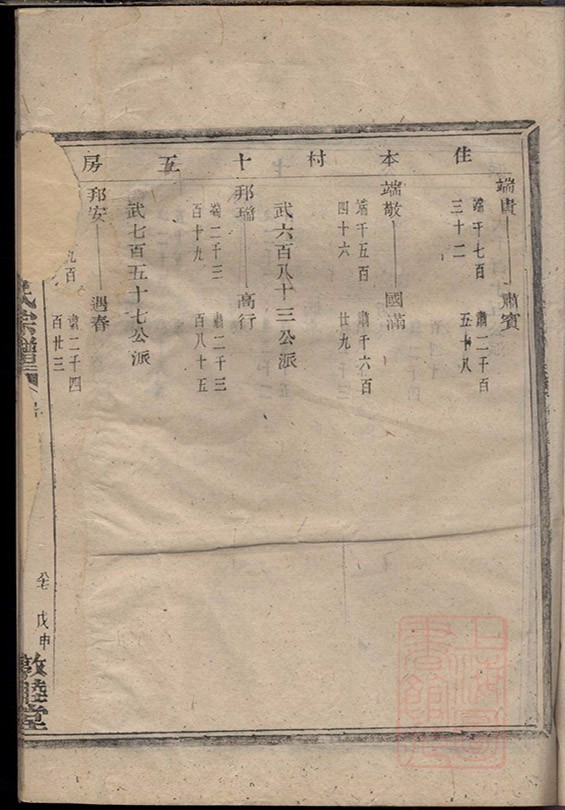 住本村十五房
端貴 肅賓
端千七百三十二
肅二千百五十八
端敬 國滿
端千五百四十六
肅千六百廿九
武六百八十三公派
邦瑞 高行
端二千三百十九
肅二千三百八十五
武七百五十七公派
邦安 遇春
九百
肅二千四百廿三
氏宗譜
戊申
敦睦堂